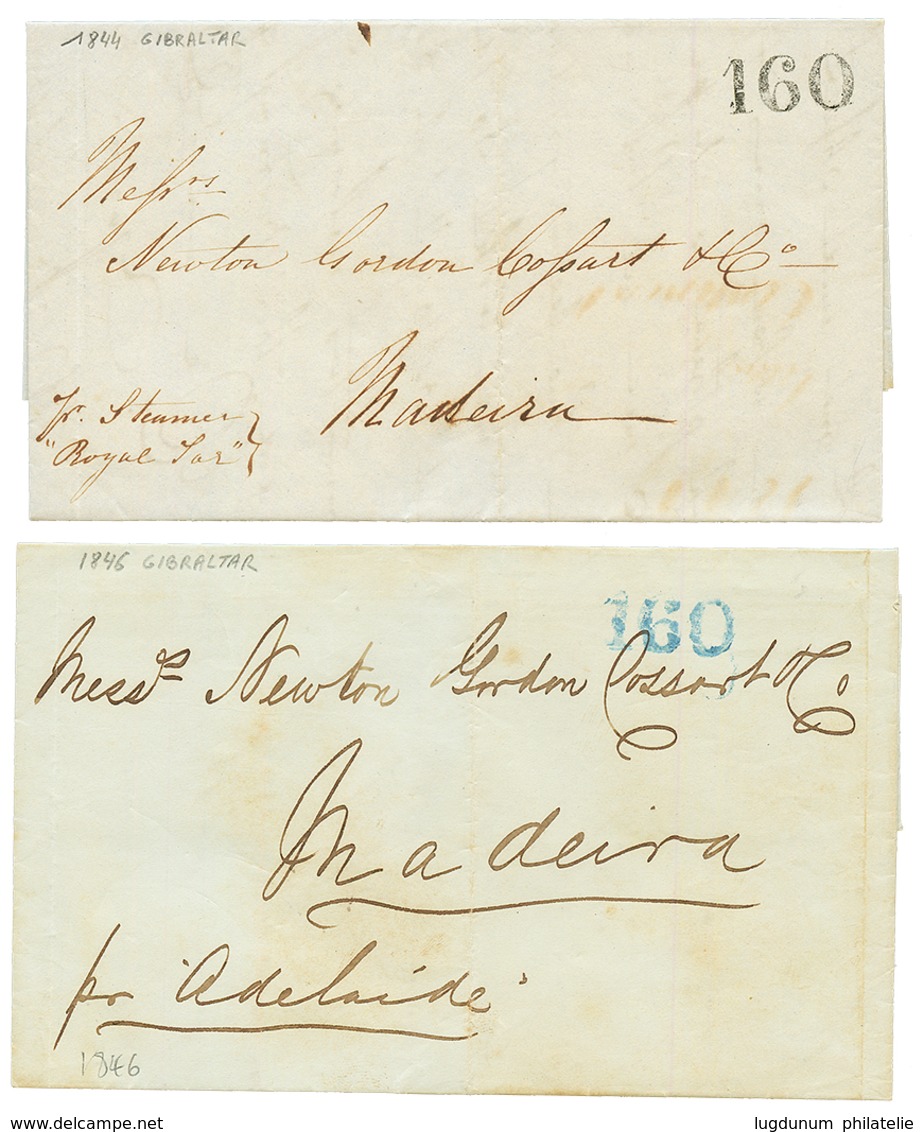 1844 GIBRALTAR
160
Meſsrs
Newton Gordon Coſsart & Co
Madeira
pr. Steamer
"Royal Tar"
1846 GIBRALTAR
160
Messrs Newton Gordon Cossart & Co
Madeira
pr 'Adelaide'
1846
www.delcampe.net
lugdunum philatelie